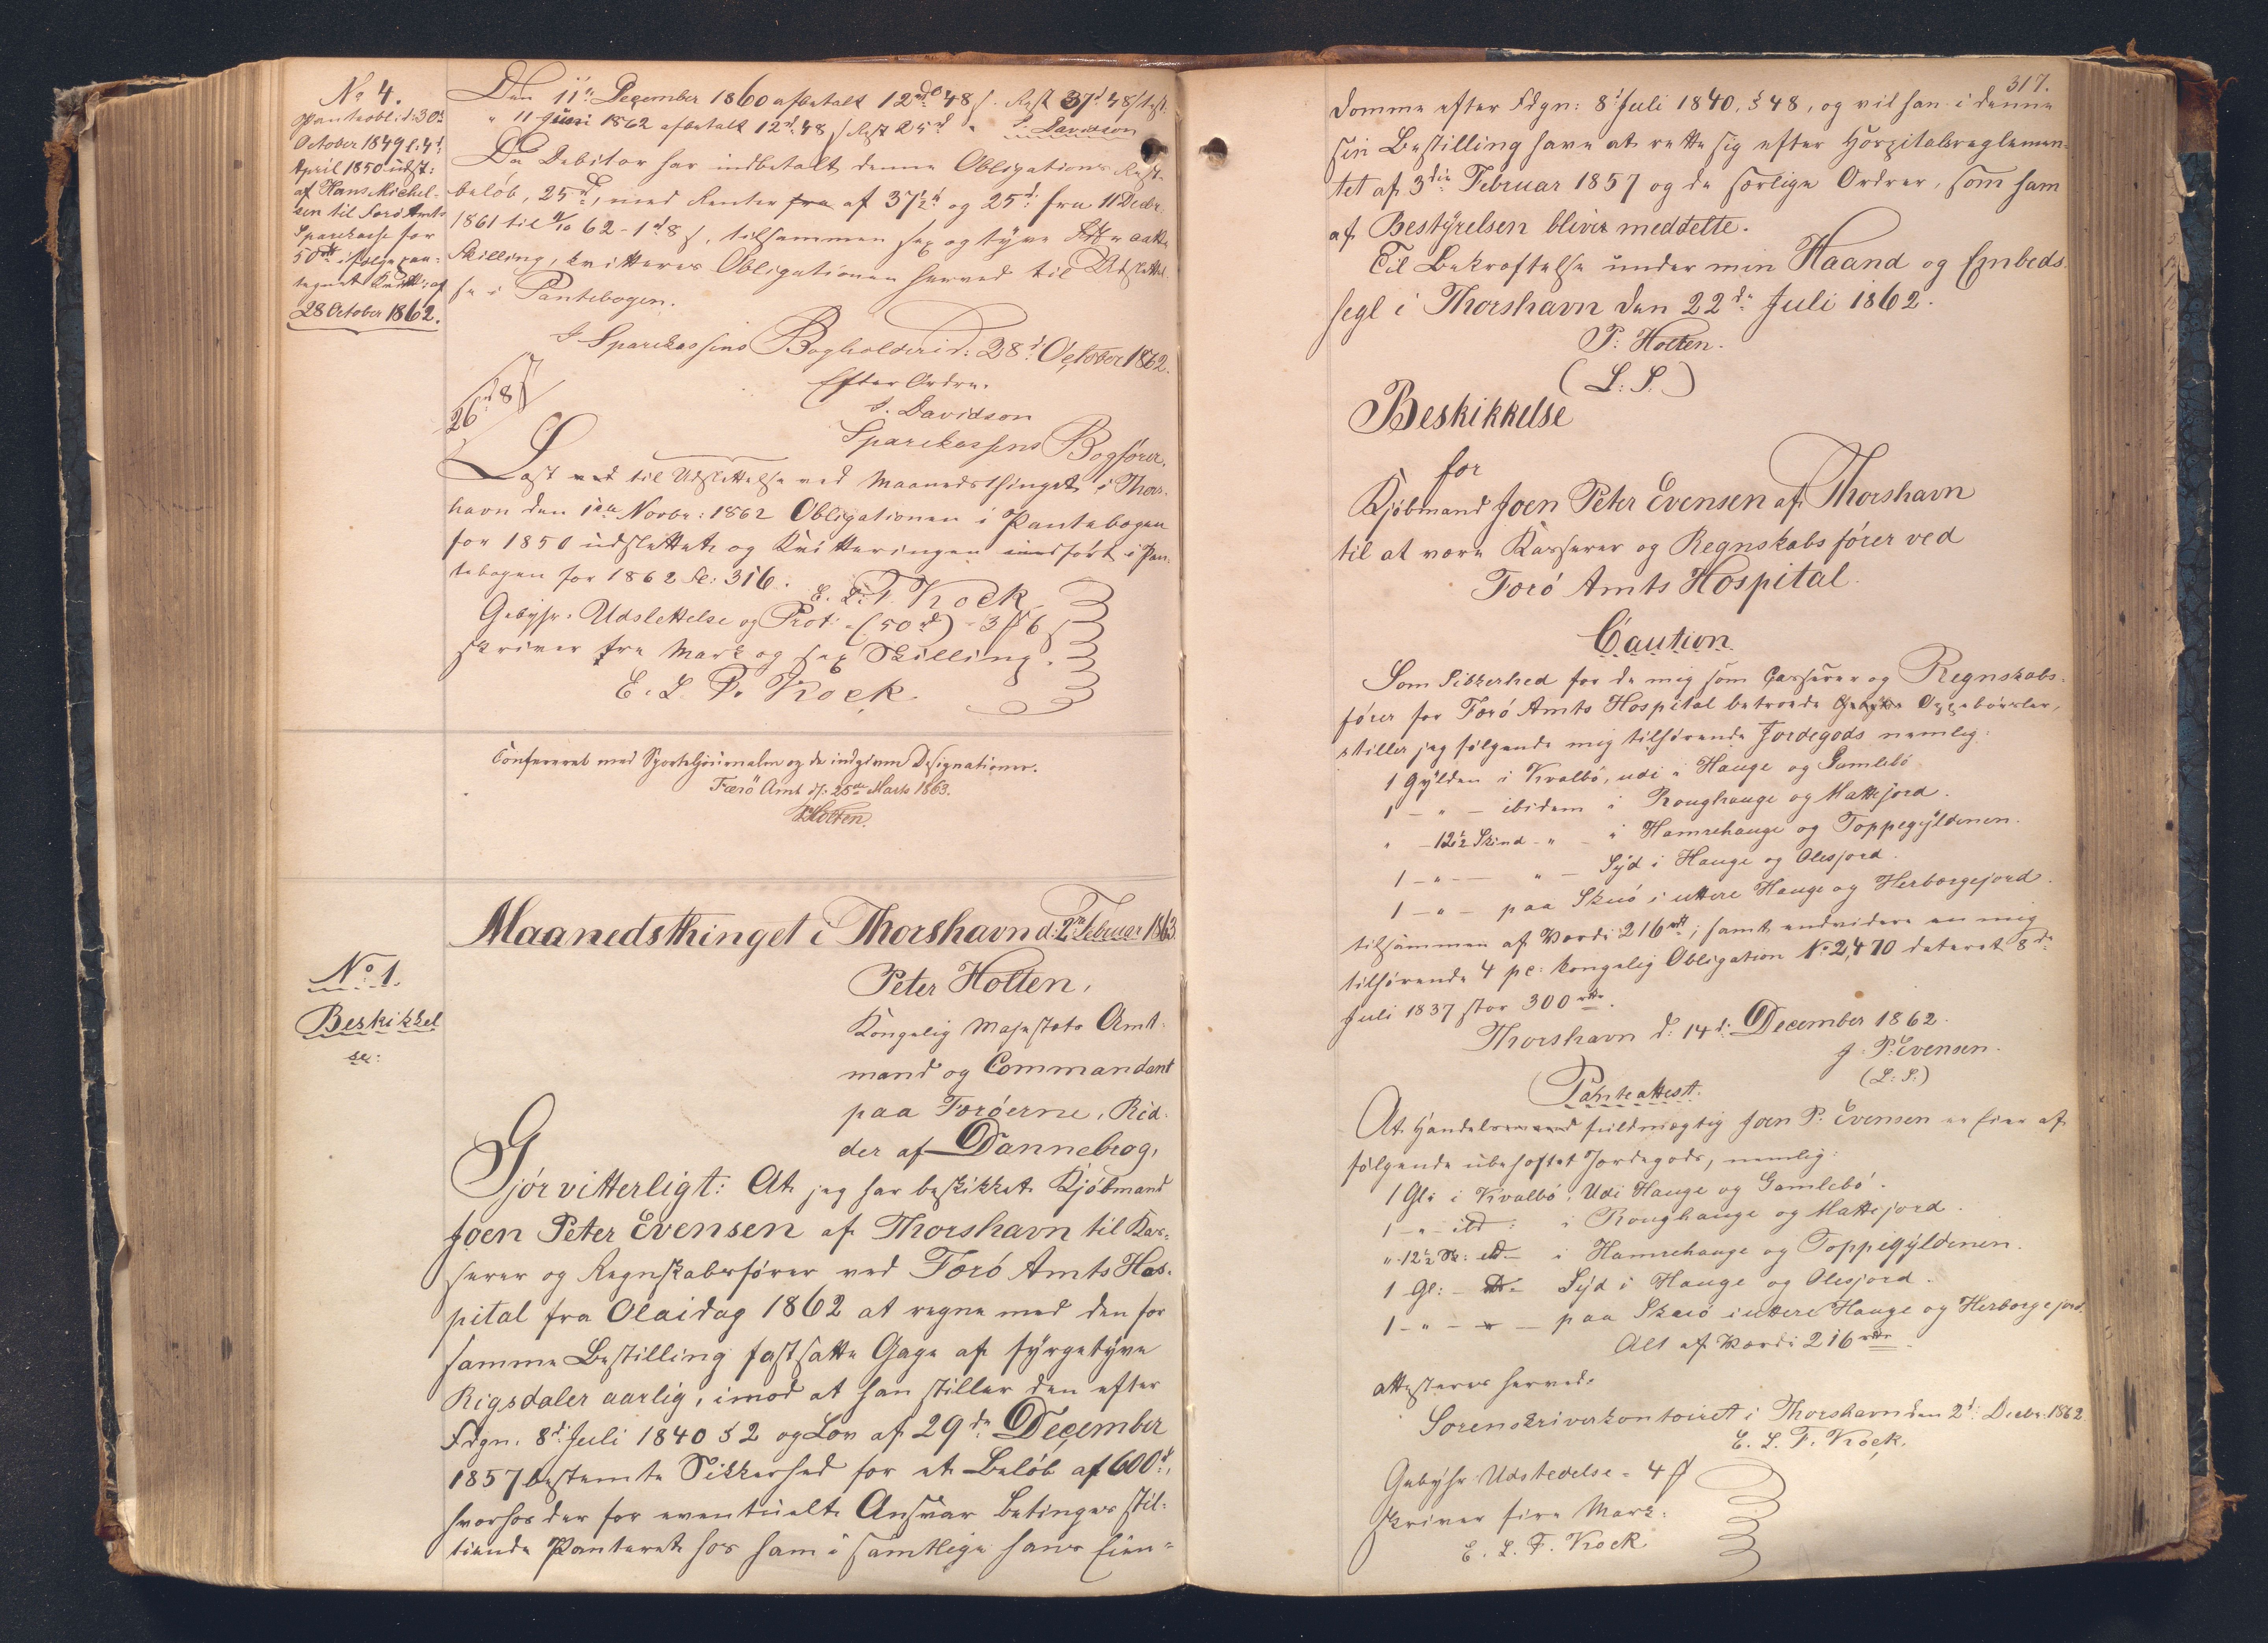 No 4.
Panteobl: d: 30te
October 1849 l: 4d:
April 1850 udst:
af Hans Michel-
sen til Færö Amts
Sparekasse for
50 rd ifølge paa-
tegnet Kvitt: af
28 October 1862.
Den 11te December 1860 afbetalt 12 rd 48 s. Rest 37 d 48 s
" 11 Juni 1862 afbetalt 12 rd. 48 s Rest 25 rd " J. Davidson
Da Debitor har indbetalt denne Obligations Rest-
beløb, 25 rd, med Renter fra af 37½ d og 25 d. fra 11 Decbr.
1861 til 62 - 1 rd 8 s, tilsammen sex og tyve Rd otte
Skilling, kvitteres Obligationen herved til Udslettel-
se i Pantebogen.
I Sparekassens Bogholderi d: 28 d: October 1862.
Efter Ordre.
J. Davidson
Sparekassens Bogfører.
26 rd 8 s
Læst ved til Udslettelse ved Maanedsthinget i Thors-
havn den 1ste Novbr: 1862 Obligationen i Pantebogen
for 1850 udslettet og Kvitteringen indført i Pan-
tebogen for 1862 Fol: 316.
E. L. F. Kock
Gebyhr. Udslettelse og Prot: (50 rd) - 3 # 6 s
skriver tre Mark og sex Skilling.
E. L. F. Kock.
Confereret med Sporteljournalen og de indgivne Designationer.
Færö Amt d. 25de Marts 1863.
PHolten.
Maanedsthinget i Thorshavn d: 2den Februar 1863
No. 1.
Beskikkel
se:
Peter Holten,
Kongelig Majestæts Amt-
mand og Commandant
paa Færöerne, Rid-
der af Dannebrog,
Gjör vitterligt: At jeg har beskikket Kjöbmand
Joen Peter Evensen af Thorshavn til Kas-
serer og Regnskabsfører ved Færö Amts Hos-
pital fra Olaidag 1862 at regne med den for
samme Bestilling fastsatte Gage af fyrgetyve
Rigsdaler aarlig, imod at han stiller den efter
Frdgn. 8 d: Juli 1840 § 2 og Lov af 29 de December
1857 bestemte Sikkerhed for et Belöb af 600 d,
hvorhos der for eventuelt Ansvar betinges stil-
tiende Panteret hos ham i samtlige hans Eien-
317.
domme efter Frdgn: 8 d Juli 1840, § 48, og vil han i denne
sin Bestilling have at rette sig efter Hospitalsreglemen-
tet af 3die Februar 1857 og de særlige Ordrer, som ham
af Bestyrelsen bliver meddelte.
Til Bekræftelse under min Haand og Embeds
segl i Thorshavn den 22 de Juli 1862.
P: Holten.
(L: S.)
Beskikkelse
for
Kjöbmand Joen Peter Evensen af Thorshavn
til at være Kasserer og Regnskabsfører ved
Færö Amts Hospital.
Caution
Som Sikkerhed for de mig som Casserer og Regnskabs-
fører for Færö Amts Hospital betroede Oppebörsler,
stiller jeg fölgende mig tilhörende Jordegods nemlig:
1 Gylden i Kvalbö, udi i Hauge og Gamlebö
1 - " - ibidem i Roughauge og Mattejord.
" - 12½ Skind - " - i Hamrehauge og Toppegyldenen.
1 - " - " - Syd i Hauge og Olesjord.
1 - " - paa Skuö i uttere Hauge og Herborgejord.
tilsammen af Værdi 216 rd; samt endvidere en mig
tilhörende 4 pc: kongelig Obligation No 2,470 dateret 8 de
Juli 1837 stor 300 rd.
Thorshavn d: 14 d: December 1862.
J. P. Evensen.
(L: S:)
Panteattest.
At Handelsmand fuldmægtig Joen P. Evensen er Eier af
fölgende ubehæftet Jordegods, nemlig:
1 Gl: i Kvalbö, Udi Hauge og Gamlebö.
1 - " - ibd: i Roughauge og Mattejord.
" - 12½ Sk: id - i Hamrehauge og Toppegyldenen.
1 Gl: - - Syd i Hauge og Olesjord.
1 - " - " - paa Skuö i uttere Hauge og Herborgejord.
Alt af Værdi 216 rd.
attesteres herved.
Sorenskriverkontoiret i Thorshavn den 2 d: Decbr. 1862.
E. L. F. Kock.
Gebyhr Udstedelse - 4 #
skriver fire Mark.
E. L. F. Kock